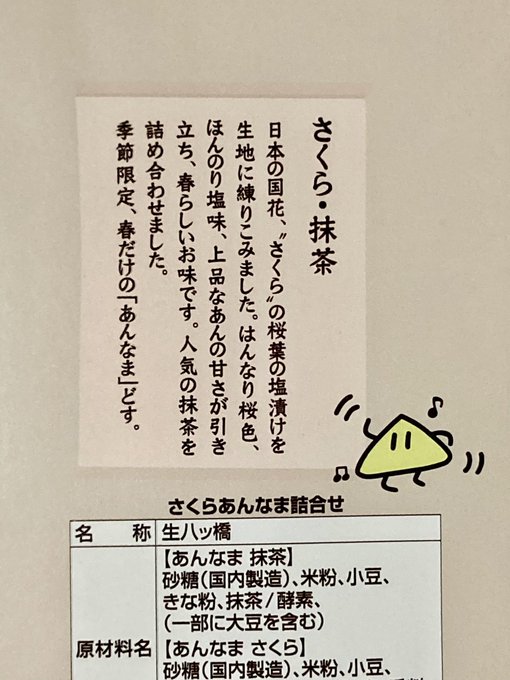 さくら・抹茶
日本の国花、〝さくら〟の桜葉の塩漬けを
生地に練りこみました。はんなり桜色、
ほんのり塩味、上品なあんの甘さが引き
立ち、春らしいお味です。人気の抹茶を
詰め合わせました。
季節限定、春だけの「あんなま」どす。
さくらあんなま詰合せ
名 称 生八ッ橋
原材料名
【あんなま 抹茶】
砂糖(国内製造)、米粉、小豆、
きな粉、抹茶/酵素、
(一部に大豆を含む)
【あんなま さくら】
砂糖(国内製造)、米粉、小豆、